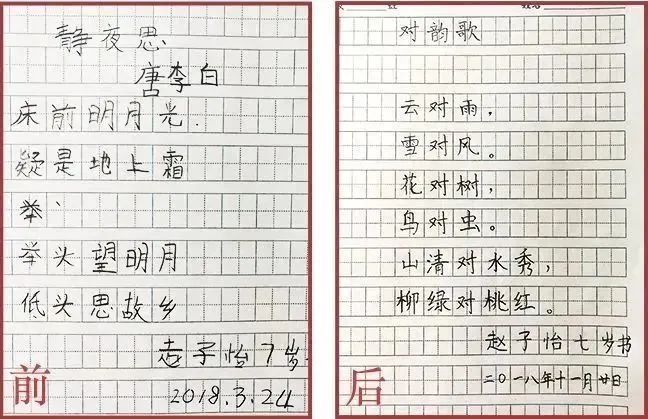 静夜思
唐李白
床前明月光.
疑是地上霜
举
举头望明月
低头思故乡
赵子怡7岁.
2018.3.24
前
对韵歌
云对雨，
雪对风。
花对树，
鸟对虫。
山清对水秀，
柳绿对桃红。
赵子怡七岁书
二〇一八年十一月廿日
后